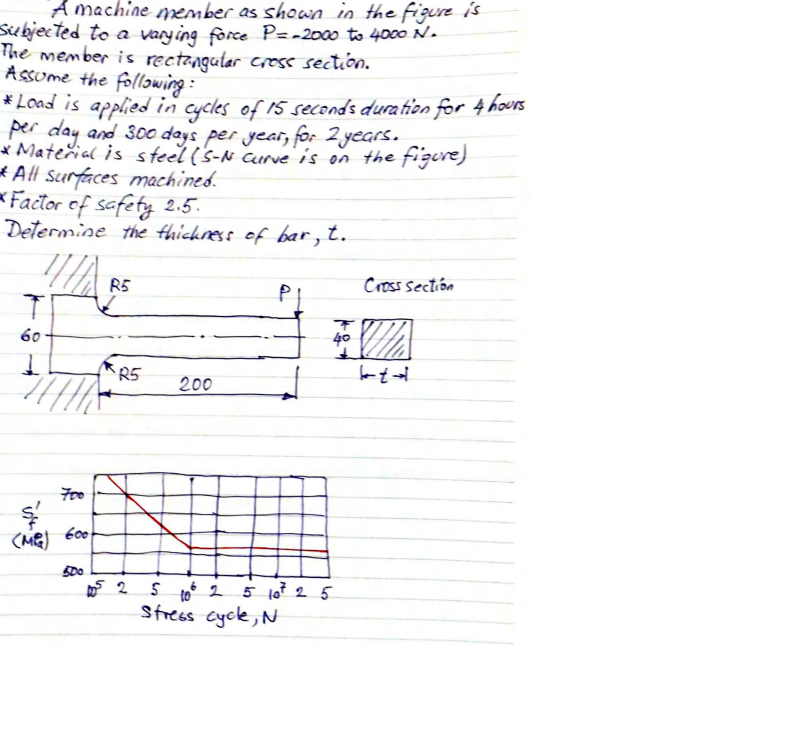 A machine member as shown in the figure is
subjected to a varying force P=-2000 to 4000 N.
The member is rectangular cross section.
Assume the following:
* Load is applied in cycles of 15 seconds duration for 4 hours
per day and 300 days per year, for 2 years.
* Material is steel (S-N curve is on the figure)
* All surfaces machined.
* Factor of safety 2.5.
Determine the thickness of bar, t.
R5
P
Cross section
60
40
R5
200
t
700
S'f
(MPa)
600
500
10^5 2 5 10^6 2 5 10^7 2 5
Stress cycle, N